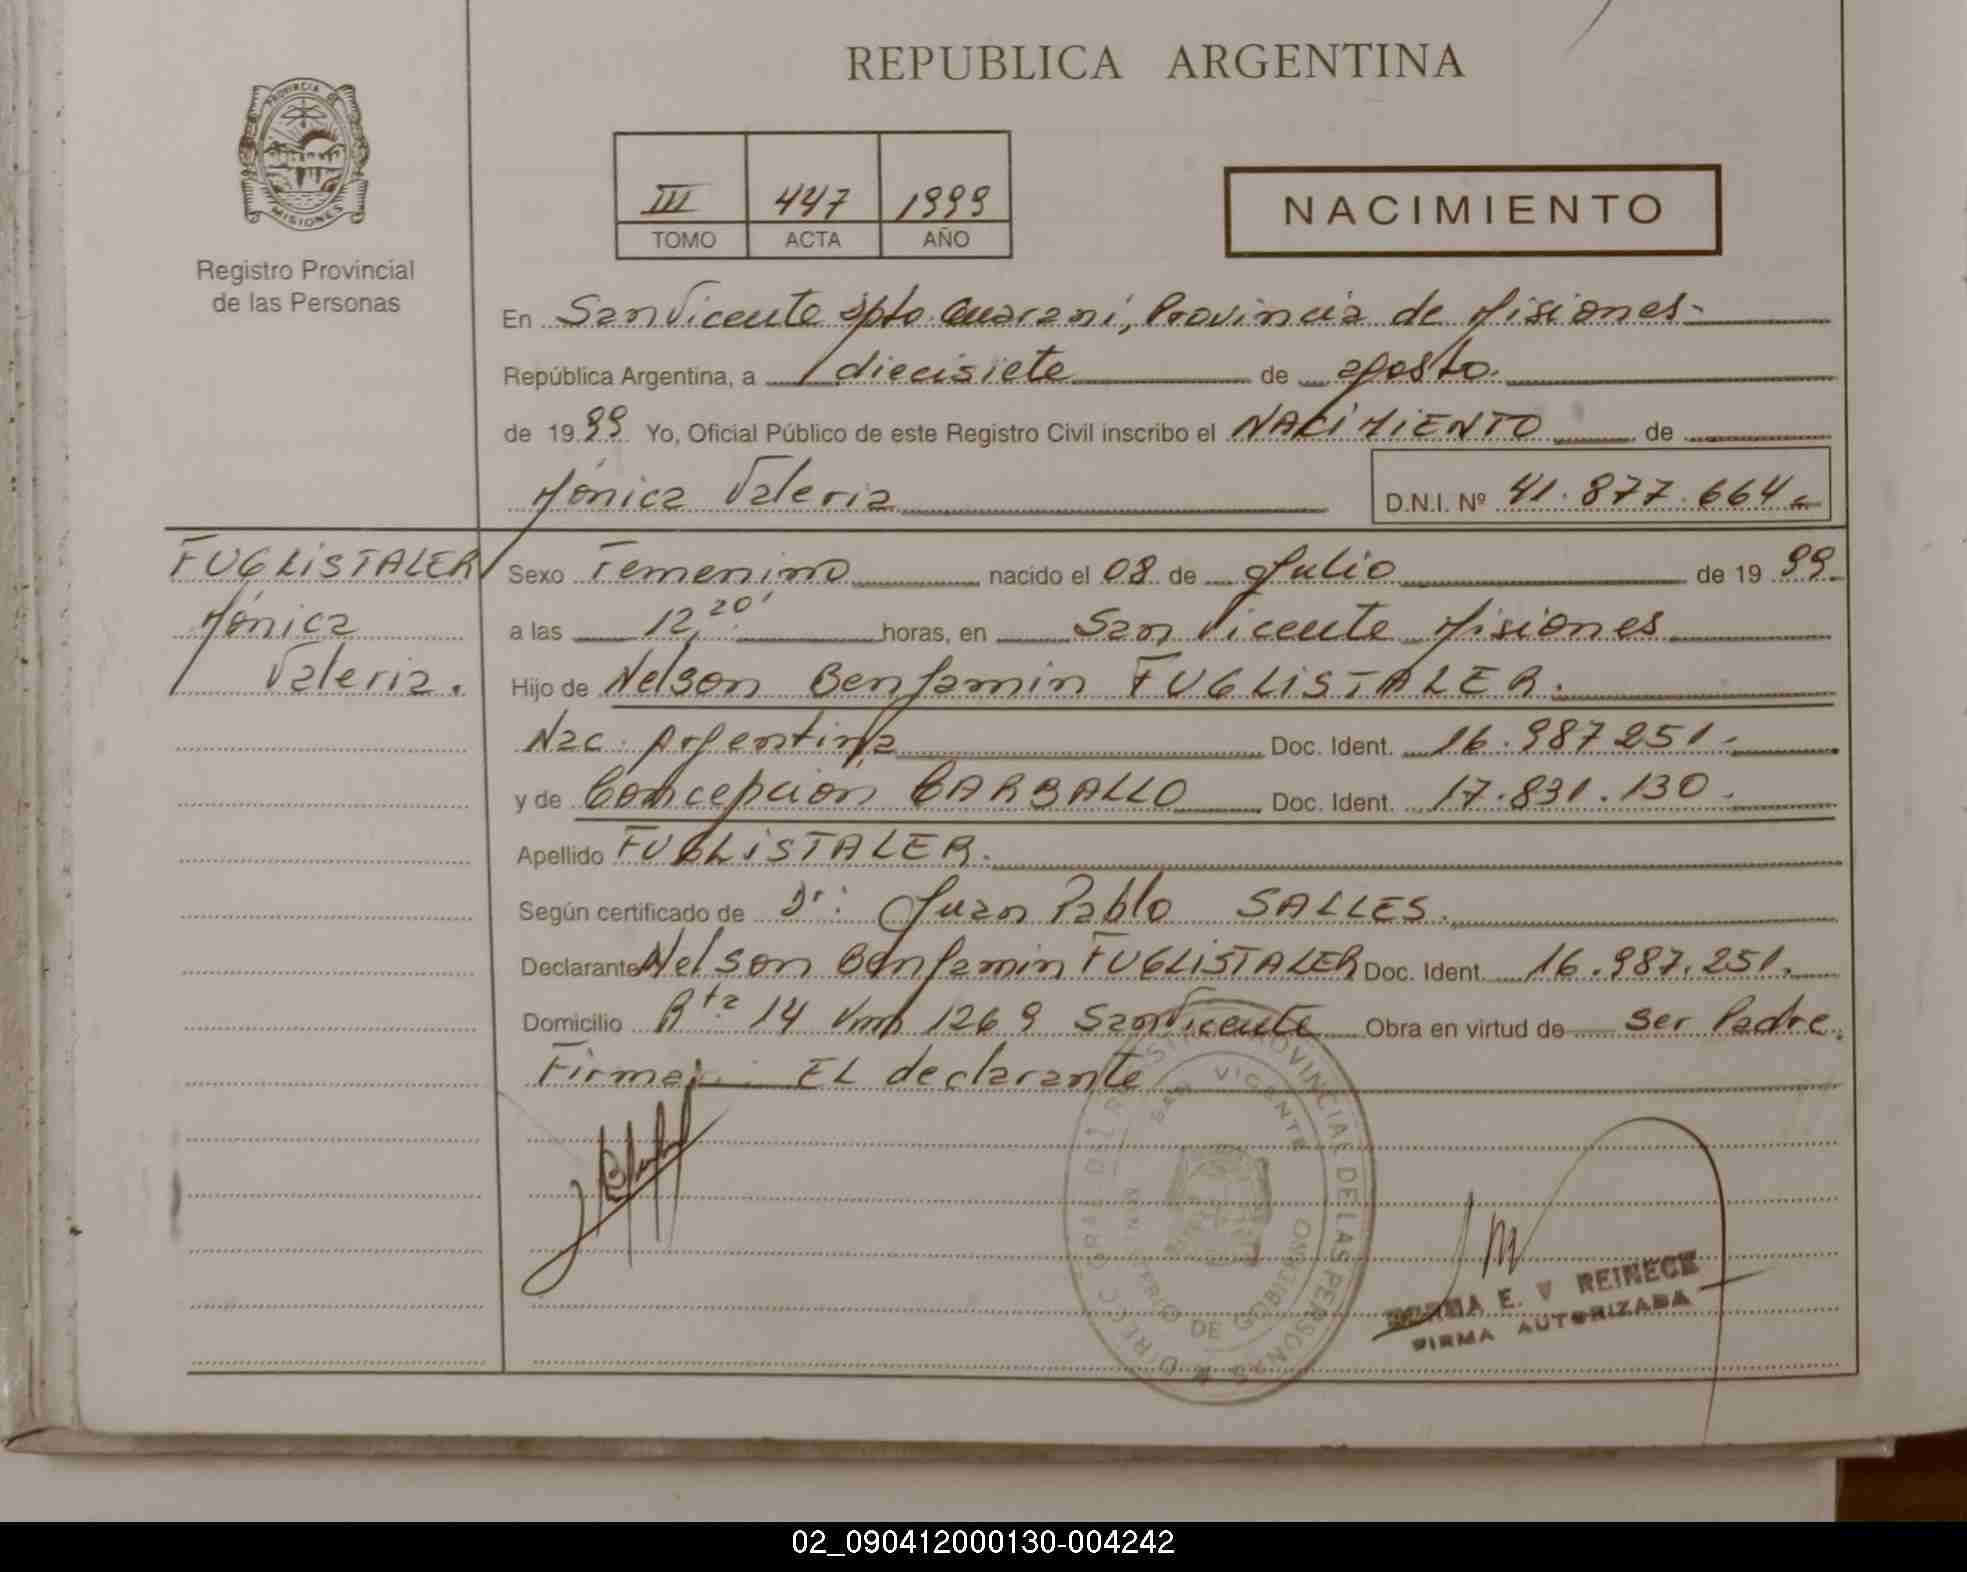 REPUBLICA ARGENTINA
PROVINCIA DE
MISIONES
Registro Provincial
de las Personas
III 447 1999
TOMO ACTA AÑO
NACIMIENTO
En San Vicente Dpto. Guaraní, Provincia de Misiones.
República Argentina, a diecisiete de agosto.
de 1999 Yo, Oficial Público de este Registro Civil inscribo el NACIMIENTO de
Mónica Valeria
D.N.I. Nº 41.877.664.
FUGLISTALER
Mónica
Valeria.
Sexo Femenino nacido el 08 de Julio de 1999.
a las 12,20' horas, en San Vicente Misiones
Hijo de Nelson Benjamin FUGLISTALER.
Nac. Argentina Doc. Ident. 16.987251.
y de Concepción CARBALLO Doc. Ident. 17.831.130.
Apellido FUGLISTALER.
Según certificado de Dr: Juan Pablo SALLES.
Declarante Nelson Benjamin FUGLISTALER Doc. Ident. 16.987.251.
Domicilio Rta 14 Km 1269 San Vicente Obra en virtud de ser Padre.
Firma: EL declarante
SAN VICENTE
PROVINCIAL DE LAS PERSONAS
DE GOBIERNO
NORMA E. V REINECK
FIRMA AUTORIZADA
02_090412000130-004242